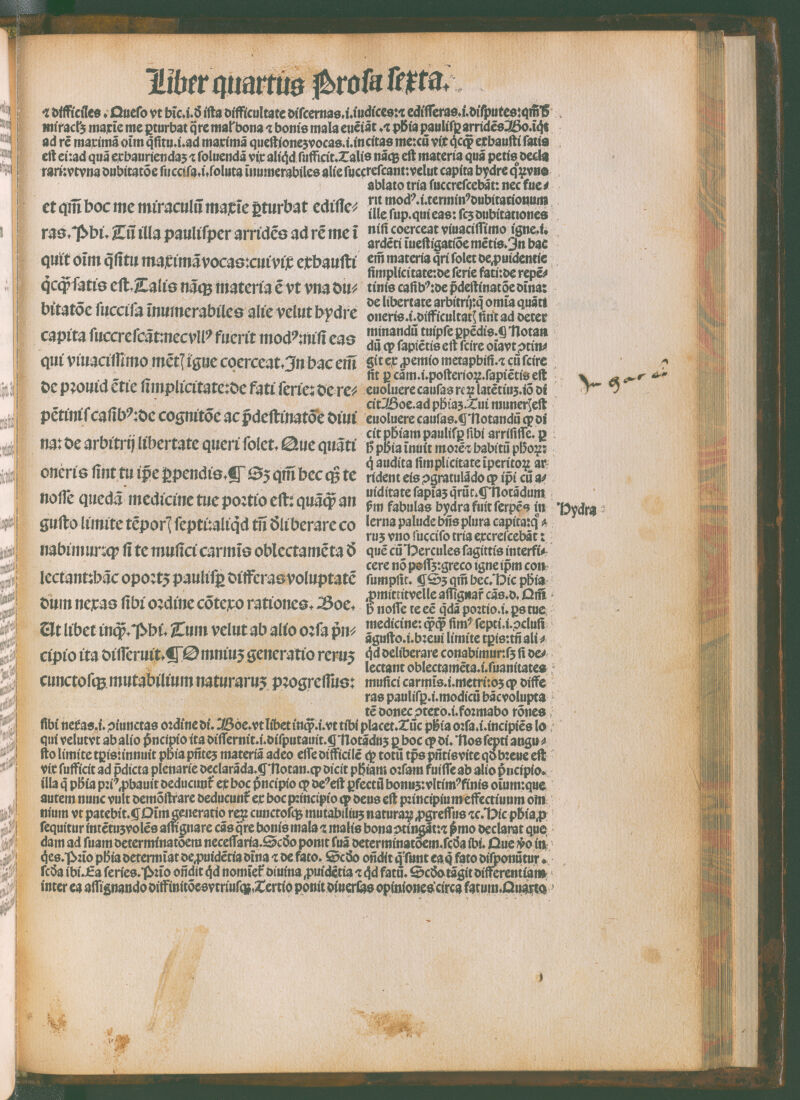 Liber quartus Prosa sexta.
⁊ difficiles. Queso vt hĩc.i.ð ista difficultate discernas.i.iudices:⁊ edisseras.i.disputes:qm̃ ħ
miracłʒ maxĩe me ꝑturbat q̃re mał bona ⁊ bonis mala euẽiãt.⁊ pħia paulisꝑ arridẽs.Bo.iq̃t
ad rẽ maximã oĩm q̃situ.i.ad maximã questionezvocas.i.incitas me:cũ vix q̃cq̃ꝫ exhausti satis
est ei:ad quã exhauriendaʒ ⁊ soluendã vix aliq̃d sufficit.Talis nãqꝫ est materia quã petis decla
rari:vtvna dubitatõe succisa.i.soluta ĩnumerabiles alie succrescant:velut capita hydre qᷓrꝫvno
ablato tria succrescebãt: nec fue⸗
rit modꝰ.i.terminꝰdubitationum
ille sup.qui eas: scʒ dubitationes
nisi coerceat viuacissimo igne.i.
ardẽti ĩuestigatiõe mẽtis.In hac
em̃ materia q̃ri solet de ꝓuidentie
simplicitate:de serie fati:de repẽ⸗
tinis casibꝰ:de p̃destinatõe diĩna:
de libertate arbitrij:q̃ omĩa quãti
oneris.i.difficultatꝭ sint ad deter
minandũ tuipse ꝑpẽdis.¶ Notan
dũ ꝙ sapiẽtis est scire oĩavt ↄtin⸗
git ex ꝓemio metaphisi.⁊ cũ scire
sit ꝑ cãm.i.posterioꝝ.sapiẽtis est
euoluere causas reꝝ latẽtiuʒ.iõ di
cit Boe.ad pħiaʒ.Tui munerꝭ est
euoluere causas.¶ Notandũ ꝙ di
cit pħiam paulisꝑ sibi arrisisse. ꝑ
ħ pħia ĩnuit morẽ⁊ habitũ pħoꝝ:
q̃ audita simplicitate ĩperitoꝝ ar
rident eis ↄgratulãdo ꝙ ip̃i cũ a⸗
uiditate sapĩaʒ q̃rũt.¶ Notãdum
ẜm fabulas hydra fuit serpẽs in
lerna palude hñs plura capita:qᷓ⸗
ruʒ vno succiso tria excrescebãt:
quẽ cũ Hercules sagittis interfi⸗
cere nõ possʒ:greco igne ip̃m con⸗
sumpsit. ¶ Sʒ qm̃ hec. Hic pħia
ꝓmittit velle assignaꝛ̃ cãs.d. Qm̃
ħ nosse te eẽ q̃dã portio.i. ꝑs tue
medicine: q̃ꝙ̃ simꝰ septi.i.ↄclusi
ãgusto.i.breui limite tꝑis:tñ ali⸗
q̃d deliberare conabimur:sʒ si de⸗
lectant oblectamẽta.i.suauitates
musici carmĩs.i.metri:oʒ ꝙ diffe
ras paulisꝑ.i.modicũ hãcvolupta
tẽ donec ↄtexo.i.formabo rõnes
et qm̃ hoc me miraculũ maxĩe ꝑturbat edisse⸗
ras. Phi. Tũ illa paulisper arridẽs ad rẽ me ĩ
quit oĩm q̃situ maximã vocas:cui vix exhausti
q̃cqꝫ satis est. Talis nãqꝫ materia ẽ vt vna du⸗
bitatõe succisa ĩnumerabiles alie velut hydre
capita succrescãt:necvllꝰ fuerit modꝰ:nisi eas
qui viuacissimo mẽtꝭ igue coerceat.In hac em̃
de prouid ẽtie simplicitate:de fati serie: de re⸗
pẽtinis casibꝰ:de cognitõe ac p̃destinatõe diui
na: de arbitrij libertate queri solet. Que quãti
oneris sint tu ip̃e ꝑpendis.¶ Sʒ qm̃ hec qꝫ te
nosse quedã medicine tue portio est: quãꝙ̃ an
gusto limite tẽporꝭ septi:aliq̃d tñ ðliberare co
nabimur:ꝙ si te musici carmĩs oblectamẽta ð
lectant:hãc oportʒ paulisꝑ differas voluptatẽ
dum nexas sibi ordine cõtexo rationes. Boe.
Ut libet inqꝫ. Phi. Tum velut ab alio orsa p̃n⸗
cipio ita disseruit.¶ Omniuʒ generatio reruʒ
cunctosqꝫ mutabilium naturaruʒ progressus:
Hydra
sibi nexas.i. ↄiunctas ordine di. Boe. vt libet inqꝫ.i.vt tibi placet.Tũc pħia orsa.i.incipiẽs lo
qui velutvt ab alio p̃ncipio ita disseruit.i.disputauit.¶ Notãdũʒ ꝑ hoc ꝙ di. Nos septi angu⸗
sto limite tꝑis:innuit pħia pñtez materiã adeo esse difficilẽ ꝙ totũ tp̃s pñtisvite qð breue est
vix sufficit ad p̃dicta plenarie declarãda.¶ Notan.ꝙ dicit pħiam orsam fuisse ab alio p̃ncipio.
illa q̃ pħia priꝰ ꝓbauit deducunt᷑ ex hoc p̃ncipio ꝙ deꝰest ꝑfectũ bonuʒ:vltimꝰfinis oĩum:que
autem nunc vult demõstrare deducunt᷑ ex hoc principio ꝙ deus est principium effectiuum om
nium vt patebit.¶ Oĩm generatio reꝝ cunctosqꝫ mutabiliuʒ naturaꝝ ꝓgressus ⁊c. Hic pħia ꝓ
sequitur intẽtuʒ volẽs assignare cãs q̃re bonis mala ⁊ malis bona ↄtingãt:⁊ p̃mo declarat que
dam ad suam determinatõem necessaria.Scðo ponit suã determinatõem.scða ibi. Que ṽo in
q̃es.Prĩo pħia determĩat de ꝓuidẽtia diĩna ⁊ de fato. Scðo oñdit q̃ sunt ea q̃ fato disponũtur.
scða ibi. Ea series. Prĩo oñdit q̃d nomĩet᷑ diuina ꝓuidẽtia ⁊ q̃d fatũ. Scðo tãgit differentiam
inter ea assignando diffinitõesvtriusqꝫ.Tertio ponit diuersas opiniones circa fatum.Quarto